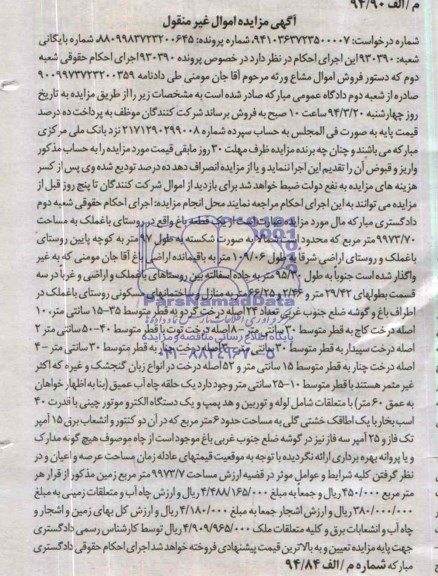 م/الف ۹۴/۹۰
آگهی مزایده اموال غیر منقول
شماره درخواست: ۹۴۱۰۳۶۳۷۲۳۵۰۰۰۰۷، شماره پرونده: ۸۸۰۹۹۸۳۷۲۳۲۰۰۶۴۵، شماره بایگانی
شعبه: ۹۳۰۳۹۰ این اجرای احکام در نظر دارد در خصوص پرونده ۹۳۰۳۹۰ اجرای احکام حقوقی شعبه
دوم که دستور فروش اموال مشاع ورثه مرحوم آقا جان مومنی طی دادنامه ۹۰۰۹۹۷۳۷۲۳۲۰۰۳۵۹
صادره از شعبه دوم دادگاه عمومی مبارکه صادر شده است به مشخصات زیر را از طریق مزایده به تاریخ
روز چهارشنبه ۹۴/۳/۲۰ ساعت ۱۰ صبح به فروش برساند شرکت کنندگان موظف به پرداخت ده درصد
قیمت پایه به صورت فی المجلس به حساب سپرده شماره ۲۱۷۱۲۹۰۲۹۹۰۰۸ نزد بانک ملی مرکزی
مبارکه می باشند و چنان چه برنده مزایده ظرف مهلت ۳۰ روز مابقی قیمت مورد مزایده را به حساب مذکور
واریز و قبوض آن را تقدیم این اجرا ننماید و یا از مزایده انصراف دهد ده درصد تودیع شده وی پس از کسر
هزینه های مزایده به نفع دولت ضبط خواهد شد برای بازدید از اموال شرکت کنندگان تا پنج روز قبل از
مزایده می توانند به این اجرای احکام مراجعه نمایند محل انجام مزایده: اجرای احکام حقوقی شعبه دوم
دادگستری مبارکه مال مورد مزایده عبارت است از یک قطعه باغ واقع در روستای باغملک به مساحت
۹۹۷۳/۷۰ متر مربع که محدود است شمالا به صورت شکسته به طول ۹۷ متر به کوچه پایین روستای
باغملک و روستای اراضی شرقا به طول ۱۰۹/۰۶ متر به باقیمانده اراضی باغ آقا جان مومنی که به غیر
واگذار شده است جنوبا به طول ۹۵/۳۰ متر به جاده آسفالته بین روستاهای باغملک و اراضی و غربا در سه
قسمت بطولهای ۲۹/۴۲ متر و ۲/۴۶ و ۶۶/۲۵ متر به منازل و ساختمانهای مسکونی روستای باغملک در
اطراف باغ و گوشه ضلع جنوب غربی تعداد ۲۴ اصله درخت گردو به قطر متوسط ۲۵-۱۵ سانتی متر، ۱۰
اصله درخت کاج به قطر متوسط ۳۰ سانتی متر - ۸ اصله درخت توت با قطر متوسط ۴۰-۵۰ سانتی متر ۲
اصله درخت سپیدار به قطر متوسط ۳۰ سانتی متر - اصله درخت چنار به قطر متوسط ۳۰ سانتی متر - ۴
اصله درخت چنار به قطر متوسط ۱۵ سانتی متر و ۵۲ اصله درخت در انواع زبان گنجشک و غیره که اکثر
غیر مثمر هستند با قطر متوسط ۱۰-۲۵ سانتی متر وجود دارد یک حلقه چاه آب عمیق (بنا به اظهار خواهان
به عمق ۶۰ متر) با متعلقات شامل لوله و توربین و هد پمپ و یک دستگاه الکترو موتور چینی با قدرت ۴۰
اسب بخار با یک اطاقک خشتی گلی به مساحت حدود ۶ متر مربع که در آن دو کنتور و انشعاب برق ۱۵ آمپر
تک فاز و ۲۵ آمپر سه فاز نیز در گوشه ضلع جنوب غربی باغ موجود است از چاه موصوف هیچ گونه مدارک
و یا پروانه بهره برداری ارائه نگردیده با توجه به موقعیت قیمتهای عادله زمان مساحت عرصه و اعیان و در
نظر گرفتن کلیه شرایط و عوامل موثر در قضیه ارزش مساحت ۹۹۷۳/۷ متر مربع زمین مذکور از قرار هر
متر مربع ۴۵۰/۰۰۰ ریال و جمعا به مبلغ ۴/۴۸۸/۱۶۵/۰۰۰ ریال و ارزش چاه آب و متعلقات زمینی به مبلغ
۳۸۰/۰۰۰/۰۰۰ ریال و ارزش اشجار جمعا به مبلغ ۴/۱۸۰/۰۰۰ ریال و ارزش کل بهای زمین و اشجار و
چاه آب و انشعابات برق و کلیه متعلقات ملک ۴/۹۰۹/۹۶۵/۰۰۰ ریال توسط کارشناس رسمی دادگستری
جهت پایه مزایده تعیین و به بالاترین قیمت پیشنهادی فروخته خواهد شد اجرای احکام حقوقی دادگستری
مبارکه شماره م/الف ۹۴/۸۴
ParsNamadData
پایگاه اطلاع رسانی مناقصه و مزایده
۰۲۱-۸۸۳۴۹۶۷۰-۵